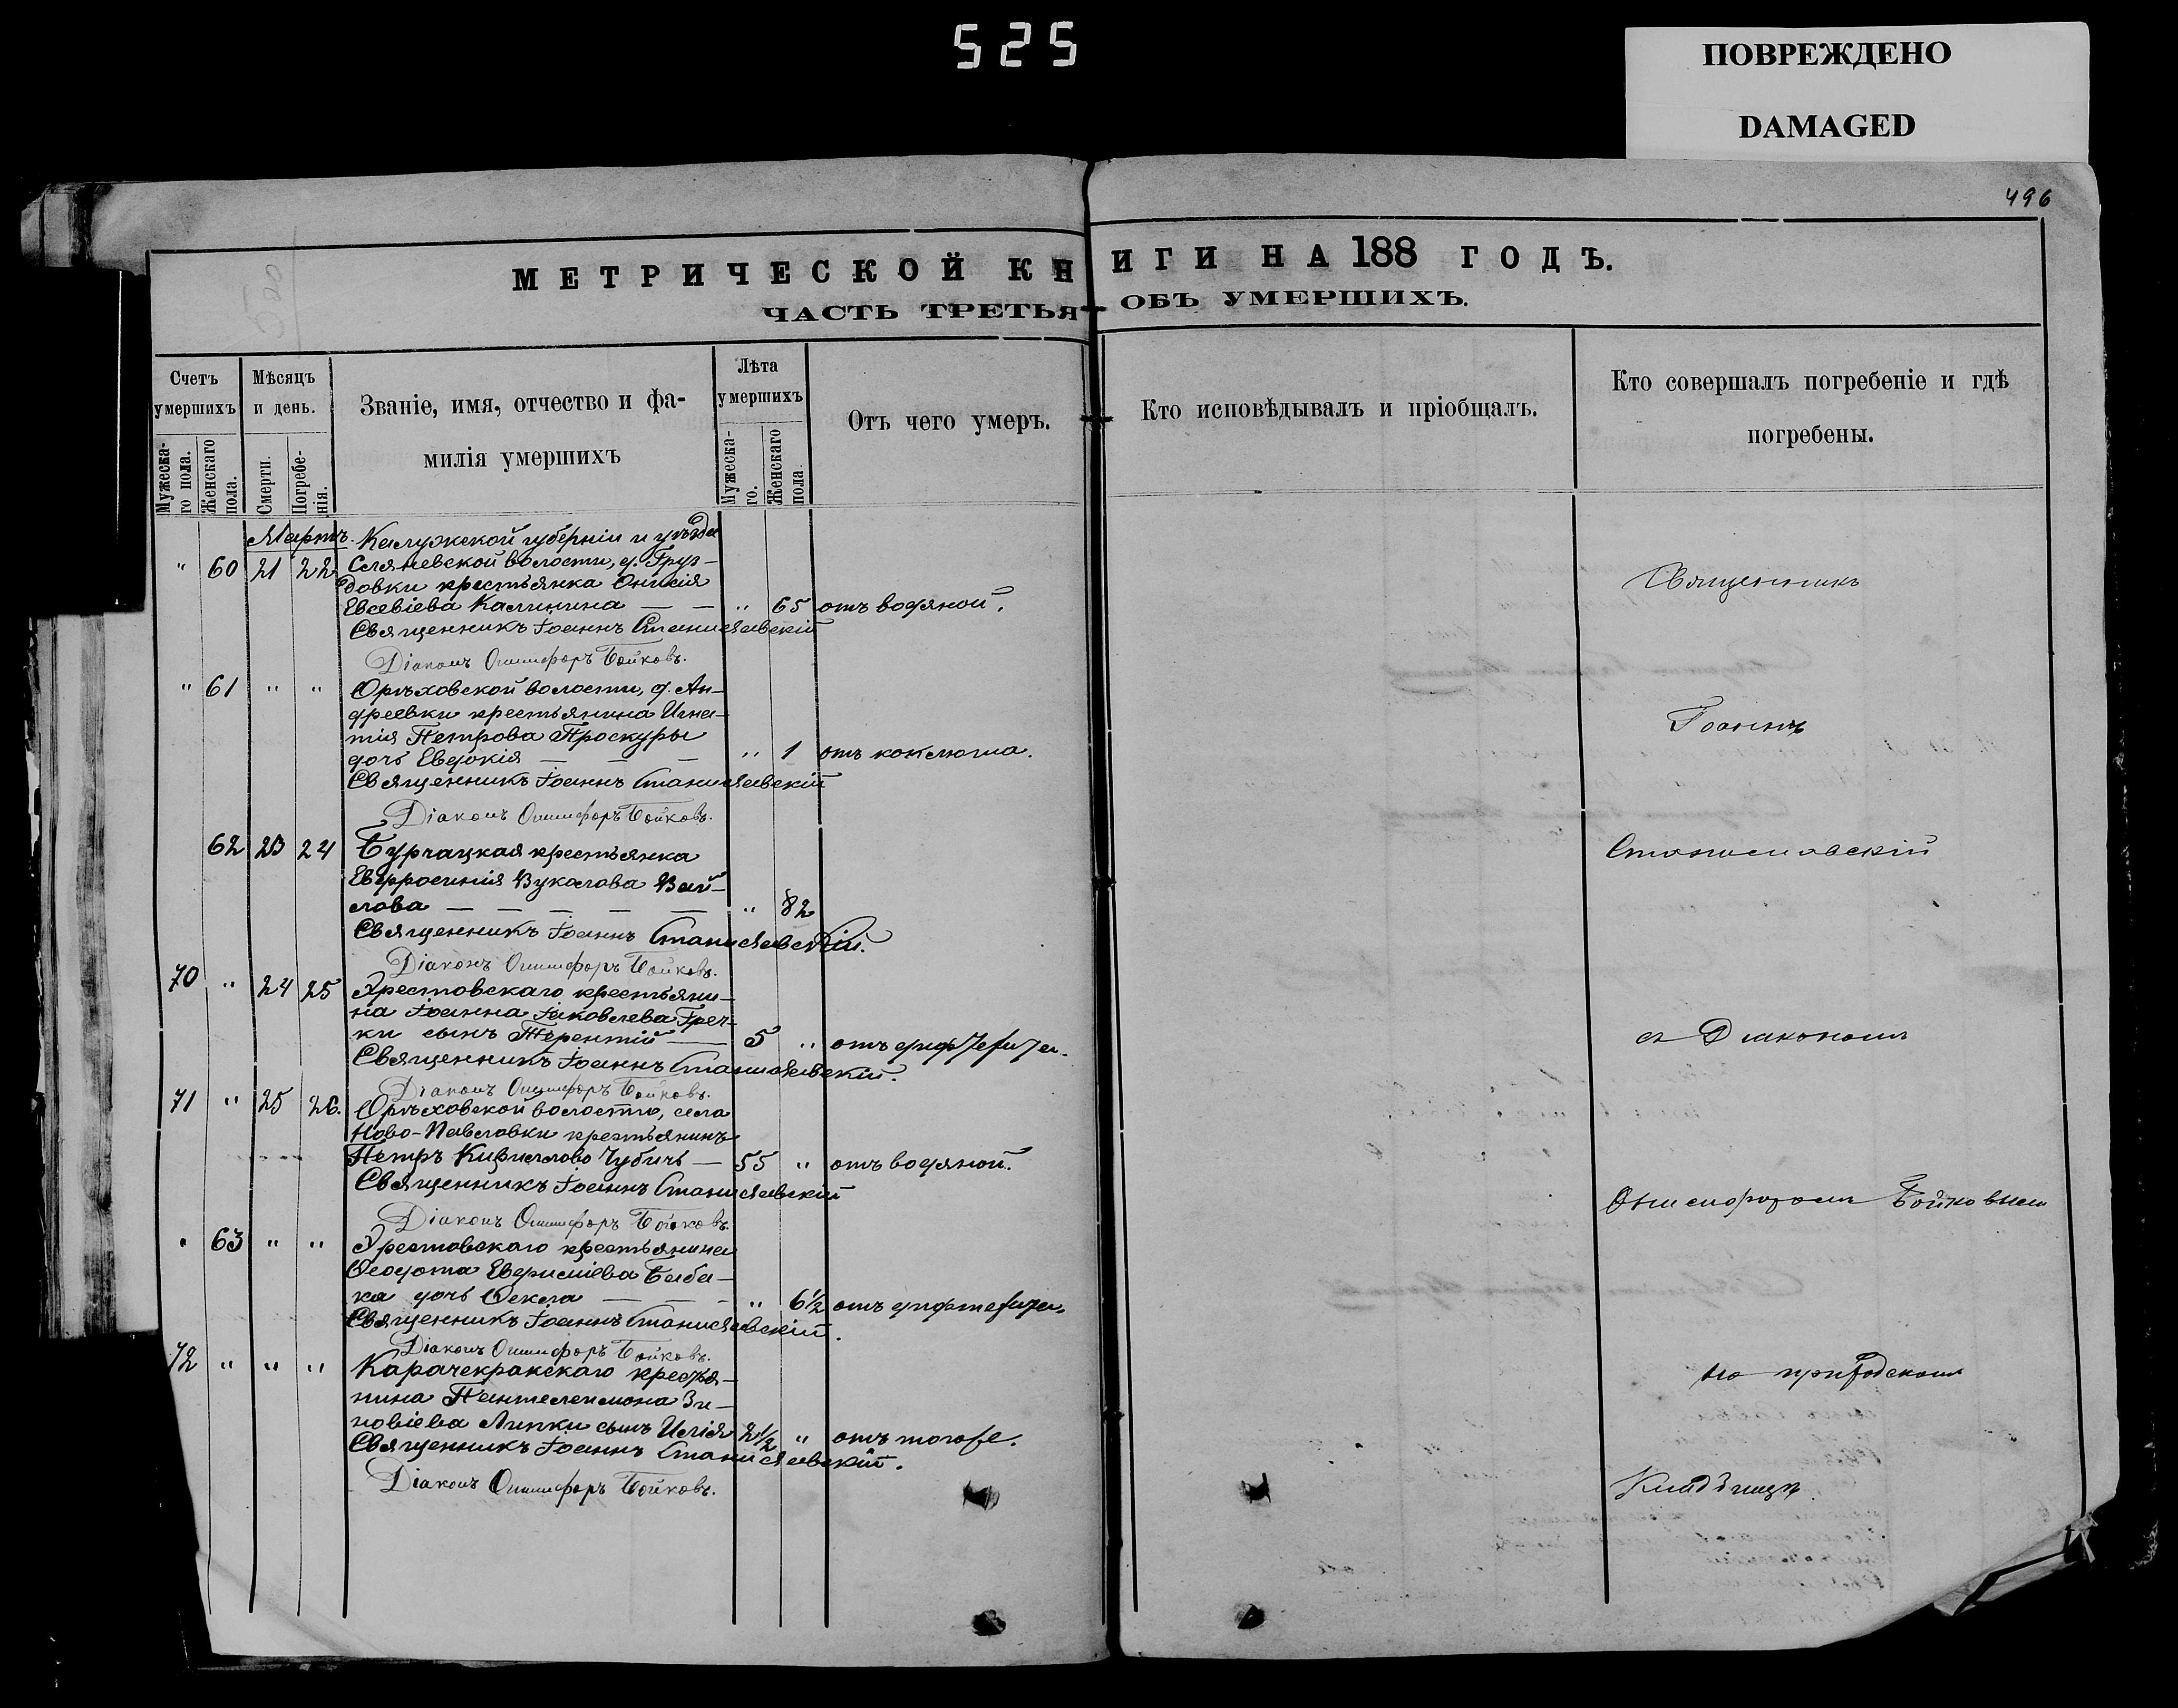 525
ПОВРЕЖДЕНО
DAMAGED
496
МЕТРИЧЕСКОЙ КНИГИ НА 188 ГОДЪ.
ЧАСТЬ ТРЕТЬЯ ОБЪ УМЕРШИХЪ.
Счетъ умершихъ
Мужеска-го пола.
Женскаго пола.
Мѣсяцъ и день.
Смерти.
Погребе-нія.
Званіе, имя, отчество и фа-
милія умершихъ
Лѣта умершихъ
Мужеска-го.
Женскаго пола.
Отъ чего умеръ.
Кто исповѣдывалъ и пріобщалъ.
Кто совершалъ погребеніе и гдѣ
погребены.
Мартъ. Калужской губерніи и уѣзда
" 60 21 22 волости, д. Груз-
довки крестьянка Онисія
Евсевіева Калинина — — " 65 отъ водяной.
Священникъ Іоаннъ Станиславскій
Діаконъ Онисифоръ Бойковъ.
" 61 " " Орѣховской волости, д. Ан-
дреевки крестьянина Игна-
тія Петрова Проскуры
дочь Евдокія — — — " 1 отъ коклюша.
Священникъ Іоаннъ Станиславскій
Діаконъ Онисифоръ Бойковъ.
62 23 24 Бурчацкая крестьянка
Евфросинія Вукалова Вай-
лова — — — — — " 82
Священникъ Іоаннъ Станиславскій.
Діаконъ Онисифоръ Бойковъ.
70 " 24 25 Хрестовскаго крестьяни-
на Іоанна Іаковлева Греч-
ки сынъ Терентій — 5 " отъ дифтерита.
Священникъ Іоаннъ Станиславскій.
Діаконъ Онисифоръ Бойковъ.
71 " 25 26. Орѣховской волости, села
Ново-Павловки крестьянинъ
Петръ Кириллово Чубичъ — 55 " отъ водяной.
Священникъ Іоаннъ Станиславскій
Діаконъ Онисифоръ Бойковъ
" 63 " " Хрестовскаго крестьянина
Ѳеодота Бабы-
ка дочь Ѳекла — — — " 6½ отъ дифтерита.
Священникъ Іоаннъ Станиславскій.
Діаконъ Онисифоръ Бойковъ.
72 " " " Карачекракскаго крестья-
нина Пантелеимона Зи-
новіева Липки сынъ Илія 2½ "
Священникъ Іоаннъ Станиславскій.
Діаконъ Онисифоръ Бойковъ.
Священникъ
Іоаннъ
Станиславскій
съ Діакономъ
Онисифоромъ Бойковымъ
на приходскомъ
Кладбищѣ.